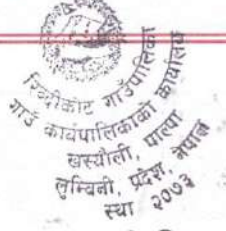 रिब्दीकोट गाउँपालिका
गाउँ कार्यपालिकाको कार्यालय
खस्यौली, पाल्पा
लुम्बिनी, प्रदेश, नेपाल
स्था २०७३